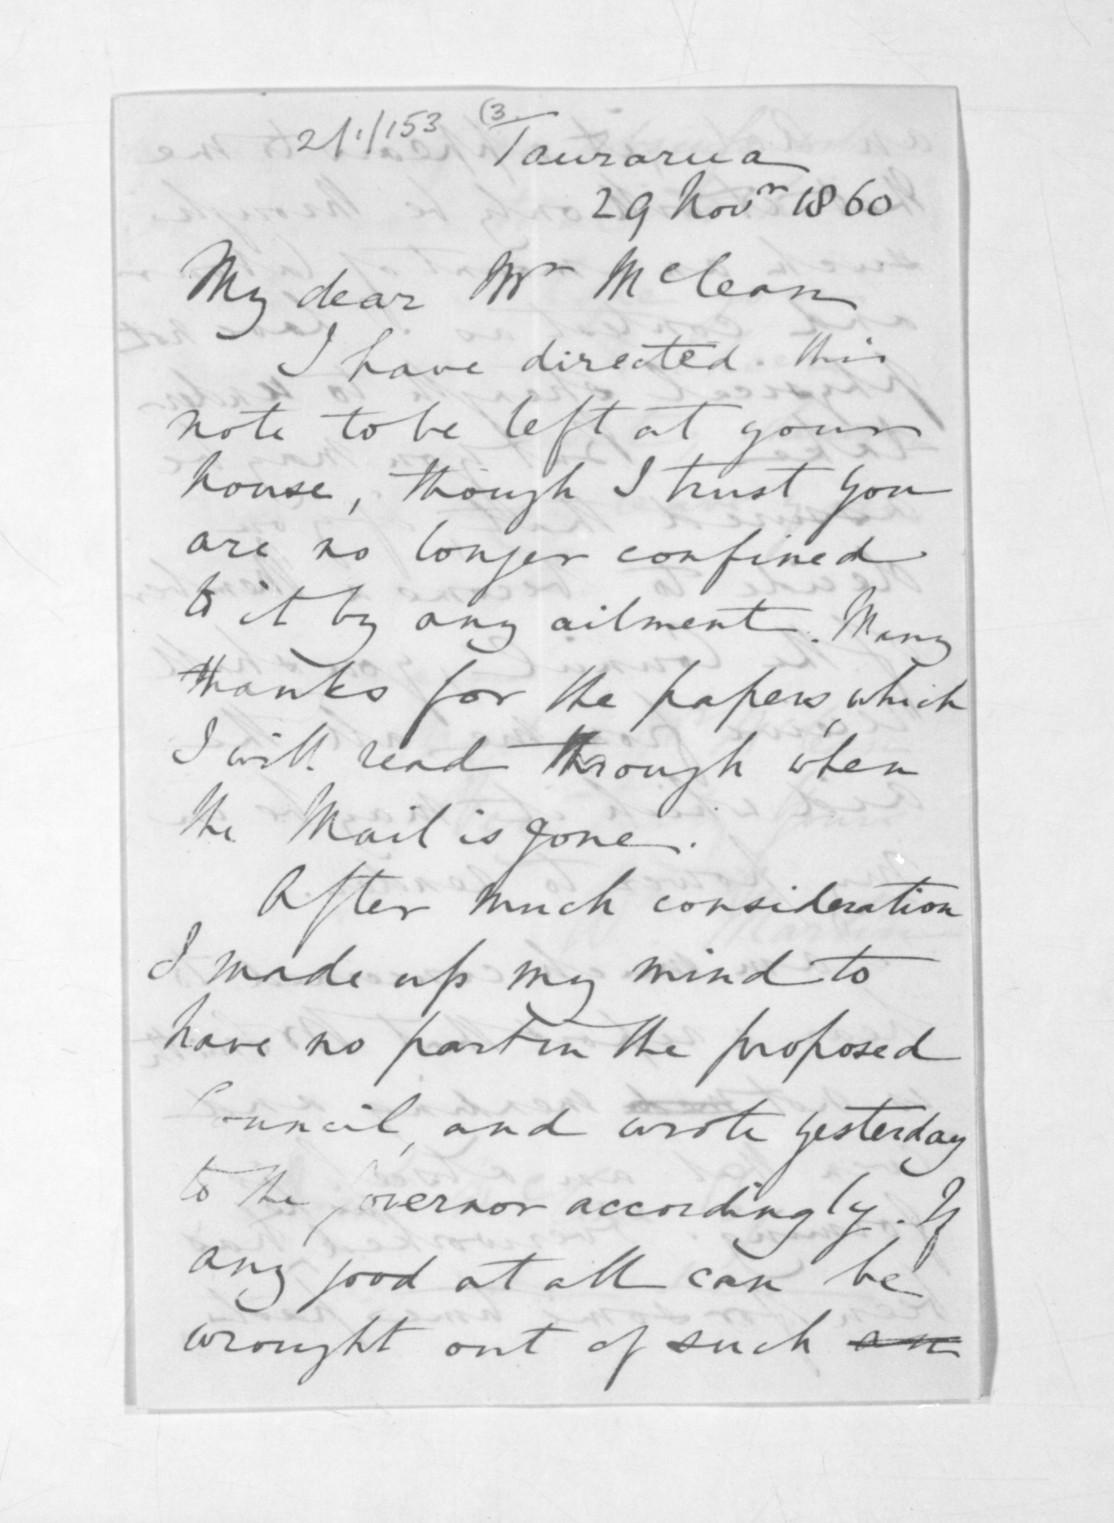 2/1/153 (3.
Taurarua
29 Novr 1860
My dear Mr McLean
I have directed this
note to be left at your
house, though I trust you
are no longer confined
to it by any ailment. Many
thanks for the papers, which
I will read through when
the Mail is gone.
After much consideration
I made up my mind to
have no part in the proposed
Council, and wrote yesterday
to the Governor accordingly. If
any good at all can be
wrought out of such an